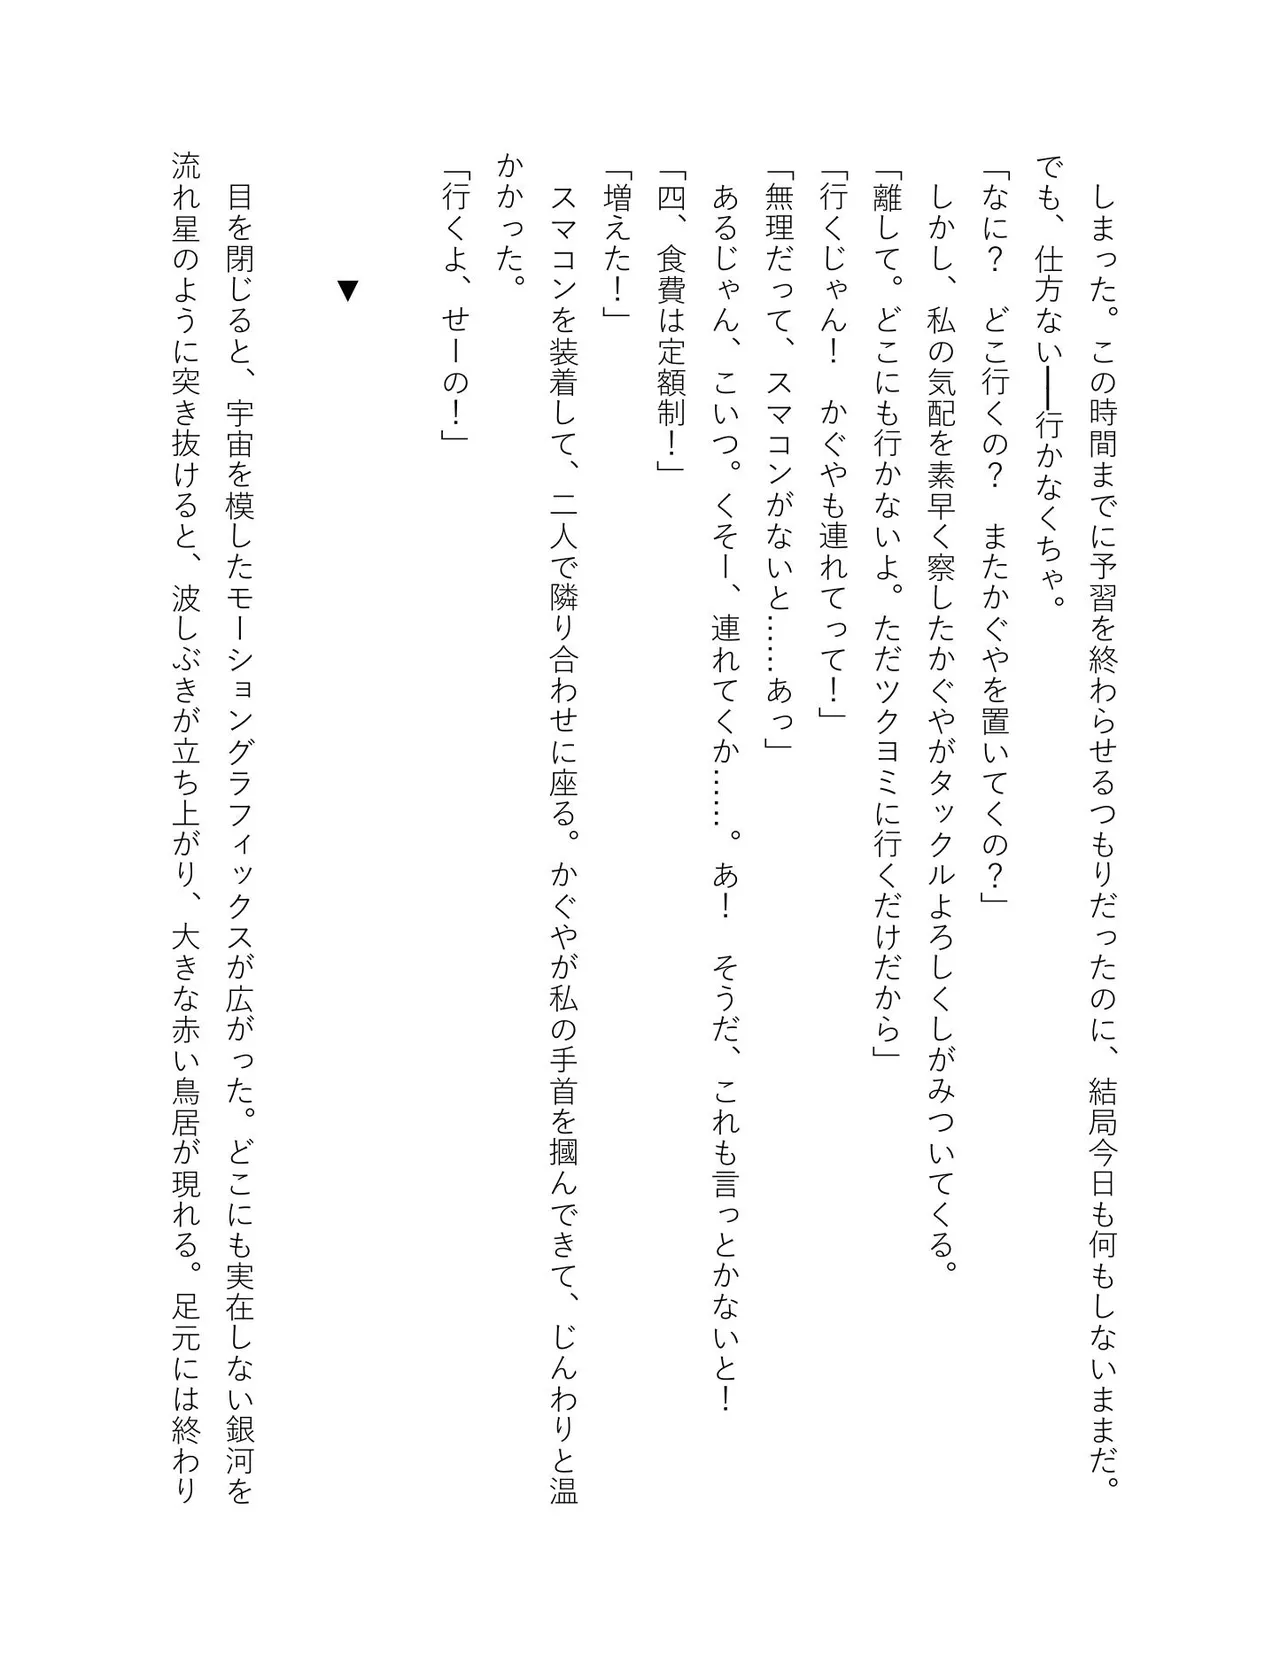 しまった。この時間までに予習を終わらせるつもりだったのに、結局今日も何もしないままだ。
でも、仕方ない――行かなくちゃ。
「なに？　どこ行くの？　またかぐやを置いてくの？」
　しかし、私の気配を素早く察したかぐやがタックルよろしくしがみついてくる。
「離して。どこにも行かないよ。ただツクヨミに行くだけだから」
「行くじゃん！　かぐやも連れてって！」
「無理だって、スマコンがないと……あっ」
　あるじゃん、こいつ。くそー、連れてくか……。あ！　そうだ、これも言っとかないと！
「四、食費は定額制！」
「増えた！」
　スマコンを装着して、二人で隣り合わせに座る。かぐやが私の手首を摑んできて、じんわりと温
かかった。
「行くよ、せーの！」
▼
　目を閉じると、宇宙を模したモーショングラフィックスが広がった。どこにも実在しない銀河を
流れ星のように突き抜けると、波しぶきが立ち上がり、大きな赤い鳥居が現れる。足元には終わり